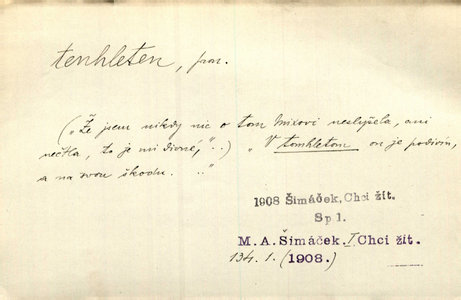 tenhleten, pron.
(„Že jsem nikdy nic o tom hnixovi neslyšela, ani
nečtla, to je mi divné,"..) „V tomhletom on je podivín,
a na svou škodu. .."
1908 Šimáček, Chci žít.
Sp 1.
M. A. Šimáček. I Chci žít.
134. 1. (1908.)